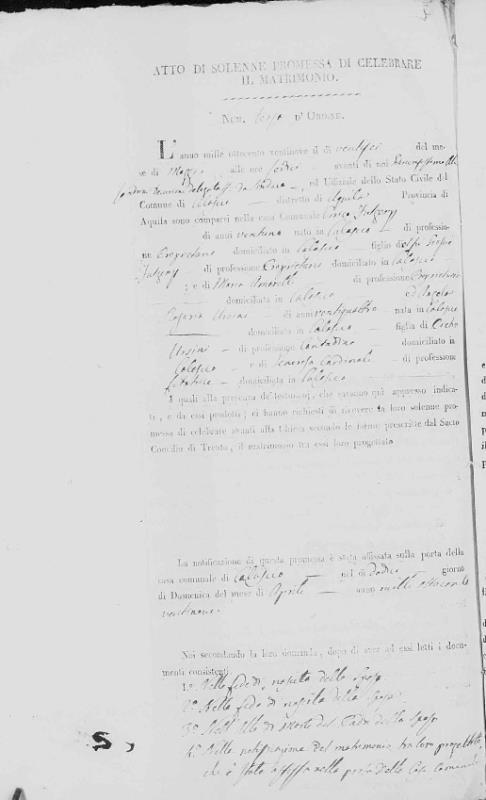 ATTO DI SOLENNE PROMESSA DI CELEBRARE
IL MATRIMONIO.
NUM. terzo D'ORDINE.
L'anno mille ottocento ventinove il dì ventisei del me-
se di Maggio alle ore sedici avanti di noi
ed Uffiziale dello Stato Civile del
Comune di Calascio distretto di Aquila Provincia di
Aquila sono comparsi nella casa Comunale
di anni ventuno nato in Calascio di professio-
ne Proprietario domiciliato in Calascio figlio
di professione Proprietario domiciliato in Calascio
; e di Maria di professione Proprietaria
domiciliata in Calascio Ed Angela
Rosaria Ursini di anni ventiquattro nata in Calascio
domiciliata in Calascio figlia di
Ursini di professione Contadino domiciliato in
Calascio e di Cardinali di professione
domiciliata in Calascio
I quali alla presenza de' testimonj, che saranno quì appresso indica-
ti, e da essi prodotti; ci hanno richiesti di ricevere la loro solenne pro-
messa di celebrare avanti alla Chiesa secondo le forme prescritte dal Sacro
Concilio di Trento, il matrimonio tra essi loro progettato
La notificazione di questa promessa è stata affissata sulla porta della
casa comunale di Calascio nel dì dodici giorno
di Domenica del mese di Aprile anno mille ottocento
ventinove.
Noi secondando la loro domanda, dopo di aver ad essi letti i docu-
menti consistenti
1.° Nella fede di nascita dello sposo
2.° Nella fede di nascita della sposa
3.° Nell'Atto di morte del Padre della sposa
4.° Nella notificazione del matrimonio tra loro progettato,
che è stata affissa nella porta della Casa Comunale